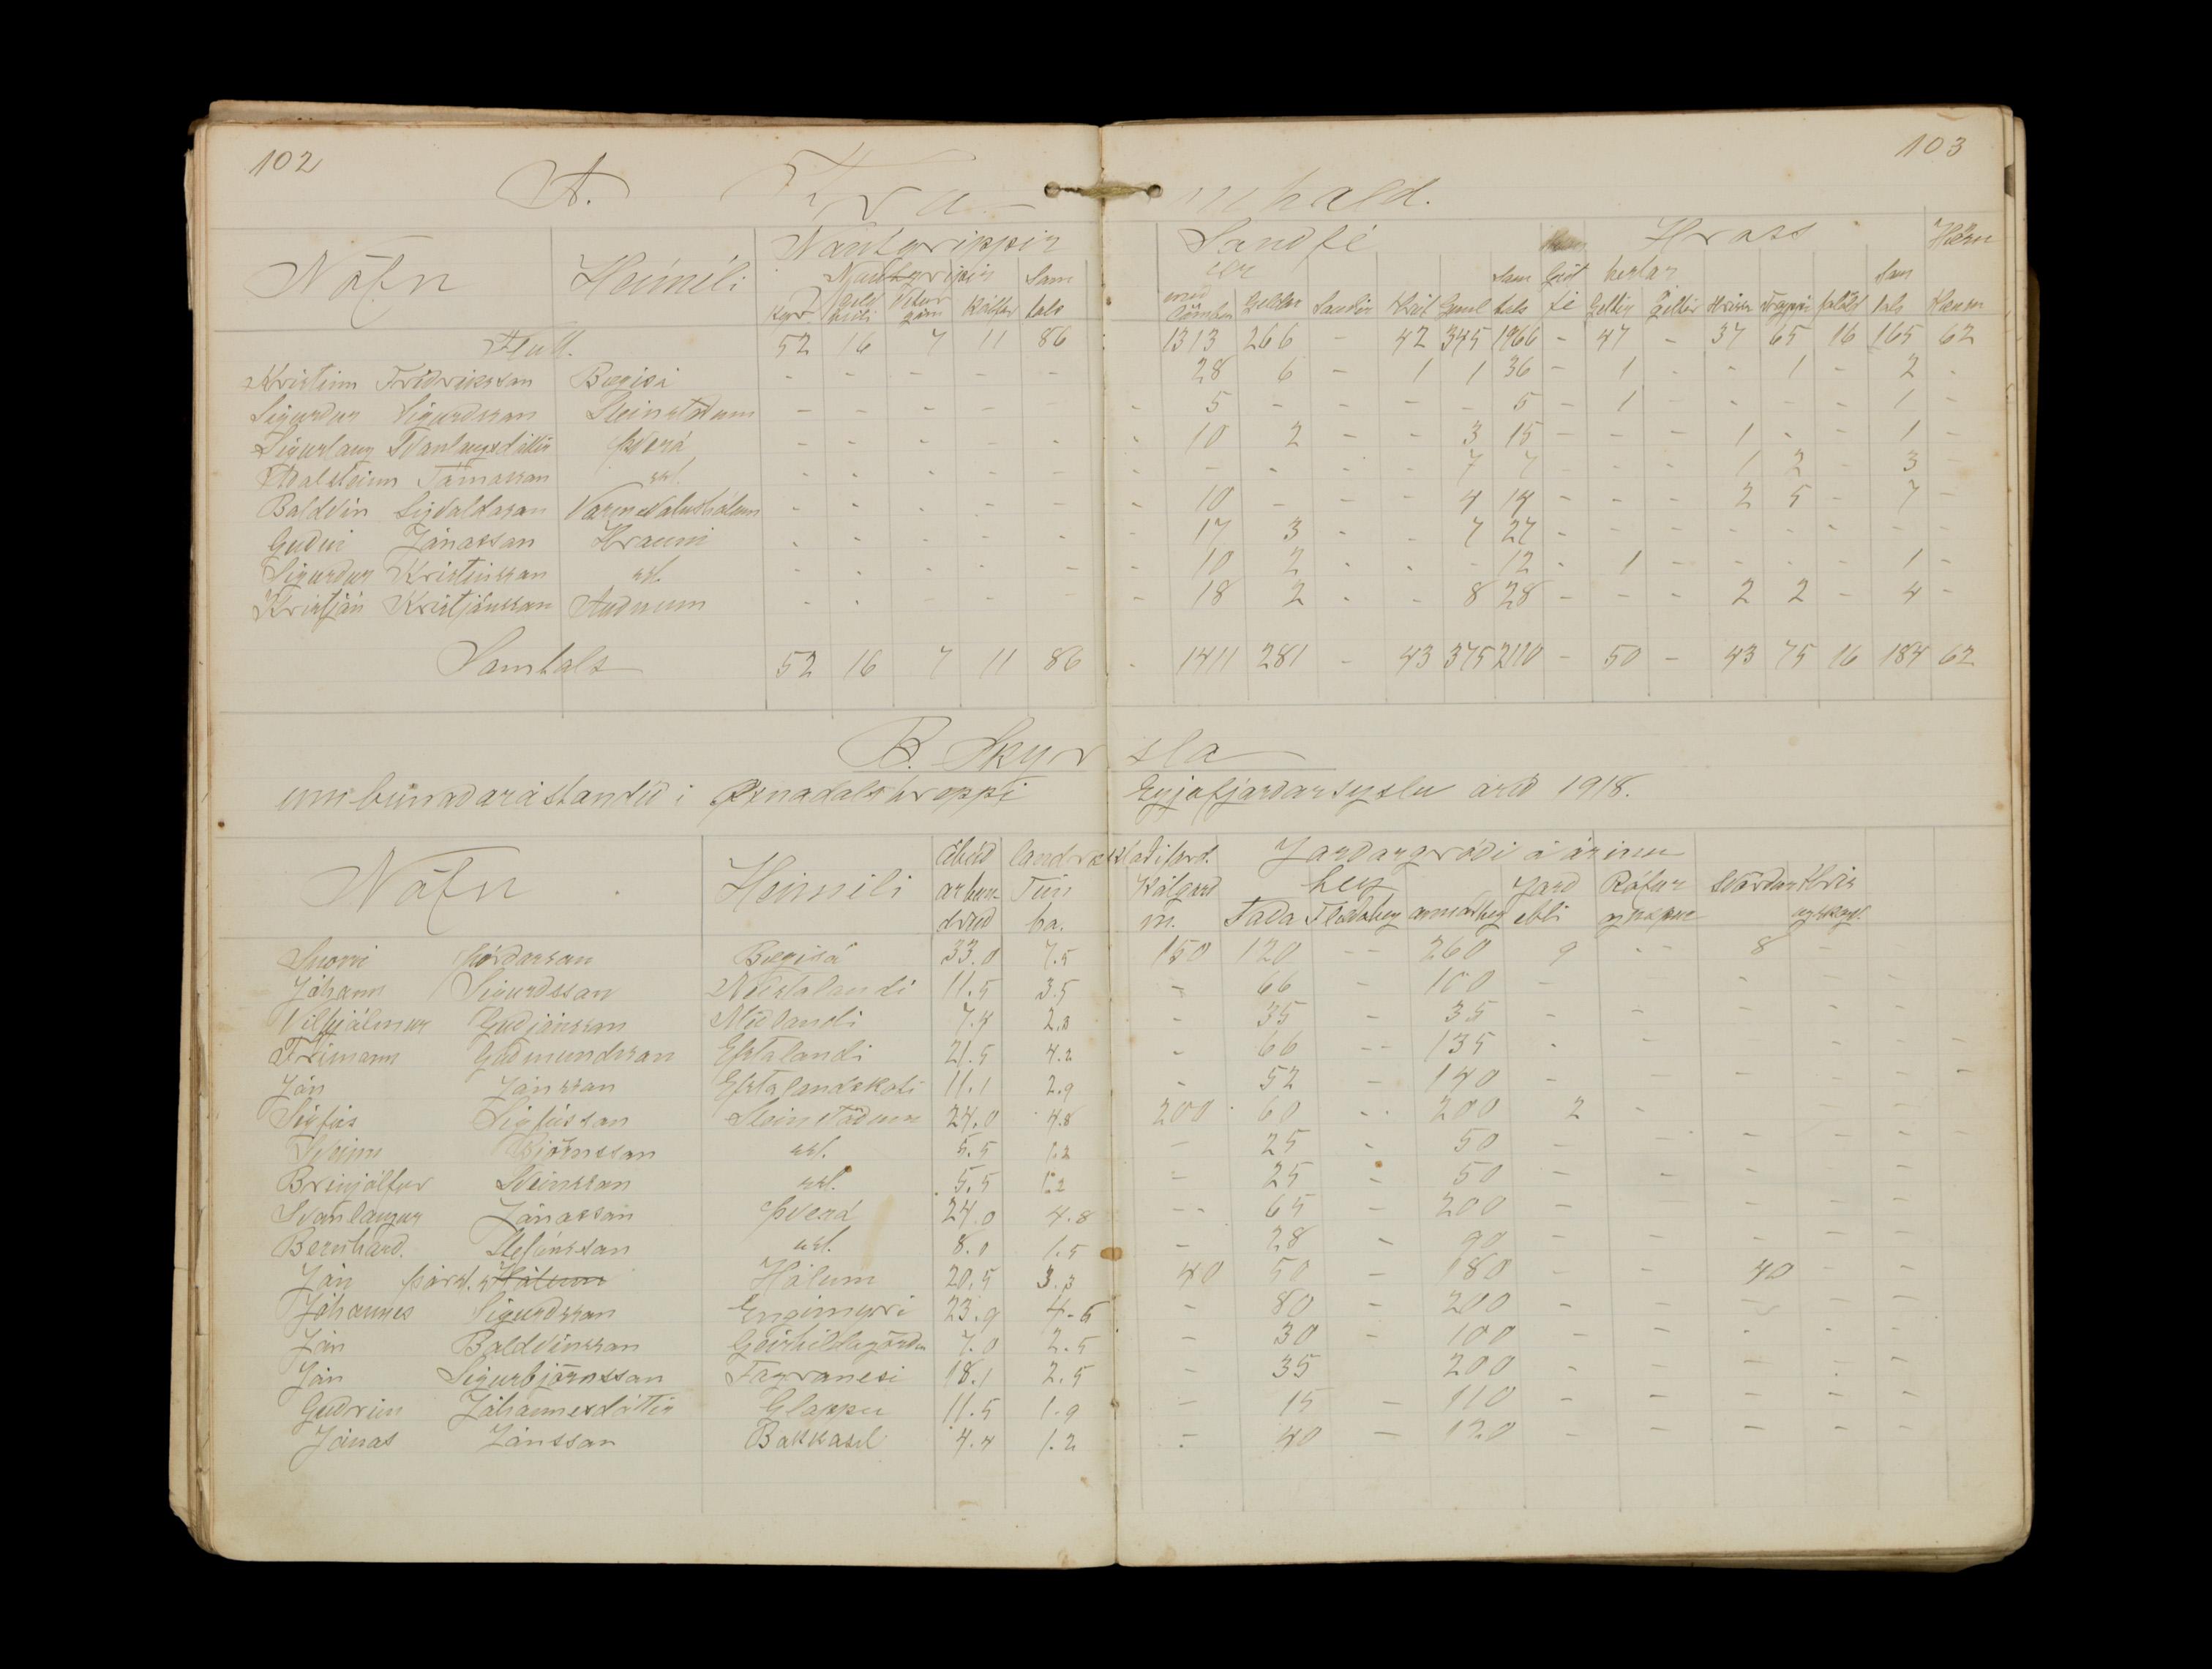 102
103
A. Fra- mhald.
Nöfn Heimili Nautgrippir Sauðfé Geit fé Hross Hæns
Kýr Geld Vetur Kálfar Sam tals
ær með lömbum Geldar Sauðir Hrút Geml Sam tals hestar Geltir Hrissa Trippi folöld Sam tals Hænsn
Flutt. 52 16 7 11 86 1313 266 - 42 345 1966 - 47 - 37 65 16 165 62
Kristinn Friðriksson Bægisá - - - - - 28 6 - 1 1 36 - 1 - - 1 - 2 -
Sigurður Sigurðsson Steinstöðum - - - - - - 5 - - - - 5 - 1 - - - - 1 -
Sigurlaug Svanlaugsdóttir Þverá - - - - - - 10 2 - - 3 15 - - - 1 - - 1 -
Aðalsteinn Tómasson ssl. - - - - - - - - - - 7 7 - - - 1 2 - 3 -
Baldvin Sigvaldason Varmavatnshólum - - - - - - 10 - - - 4 14 - - - 2 5 - 7 -
Guðni Jónasson Hrauni - - - - - - 17 3 - - 7 27 - - - - - - - -
Sigurður Kristinsson ssl. - - - - - - 10 2 - - - 12 - 1 - - - - 1 -
Kristján Kristjánsson Auðnum - - - - - - 18 2 - - 8 28 - - - 2 2 - 4 -
Samtals 52 16 7 11 86 - 1411 281 - 43 375 2110 - 50 - 43 75 16 184 62
B. Skýr sla
um búnaðarástandið í Öxnadalshreppi Eyjafjarðarsýslu árið 1918.
Nöfn Heimili Ábúð landsskuldi ferð. Jarðargróði á árinu
ar hun- Tún Kálgarð hey Jarð Rófur Svörður Hrís
druð ha. m. Taða Flæðihey annað hey epli
Snorri Þórðarson Bægisá 33.0 7.5 150 120 -- 260 9 -- 8 -
Jóhann Sigurðsson Neðstalandi 11.5 3.5 - 66 - 100 - - - -
Vilhjálmur Guðjónsson Miðlandi 7.4 2.8 - 35 - 35 - - - - -
Frímann Guðmundsson Efstalandi 21.5 4.2 - 66 -- 135 - - - - -
Jón Jónsson Efstalandskoti 11.1 2.9 - 52 - 140 - - - - - -
Sigfús Sigfússon Steinstöðum 24.0 4.8 200 60 -- 200 2 - - -
Sveinn Björnsson ssl. 5.5 1.2 - 25 - 50 - - - - - -
Brinjólfur Sveinsson ssl. 5.5 1.2 - 25 - 50 - - - - -
Svanlaugur Jónasson Þverá 24.0 4.8 -- 65 - 200 - - - -
Bernharð. Stefánsson ssl. 8.0 1.5 - 28 - 90 - - - - -
Jón Þórð. s Hólum Hólum 20.5 3.3 40 50 - 180 - - 40 - -
Jóhannes Sigurðsson Engimýri 23.9 4-6 - 80 - 200 - - - - -
Jón Baldvinsson Geirhildagörðum 7.0 2.5 - 30 - 100 - - - - -
Jón Sigurbjörnsson Fagranesi 18.1 2.5 - 35 200 - - - - -
Guðrún Jóhannesdóttir Gloppu 11.5 1.9 - 15 - 110 - - - - -
Jónas Jónsson Bakkasel 4.4 1.2 - 40 - 120 - - - - -